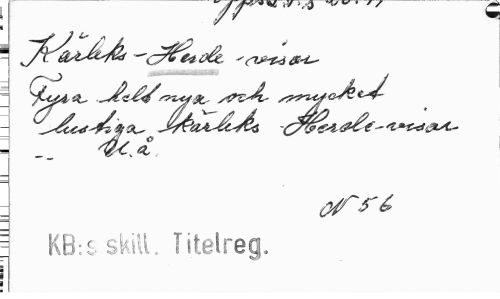 Kärleks-Herde-visor
Fyra helt nya och mycket
lustiga kärleks Herde-visor
-- U.å.
N 56
KB:s skill. Titelreg.